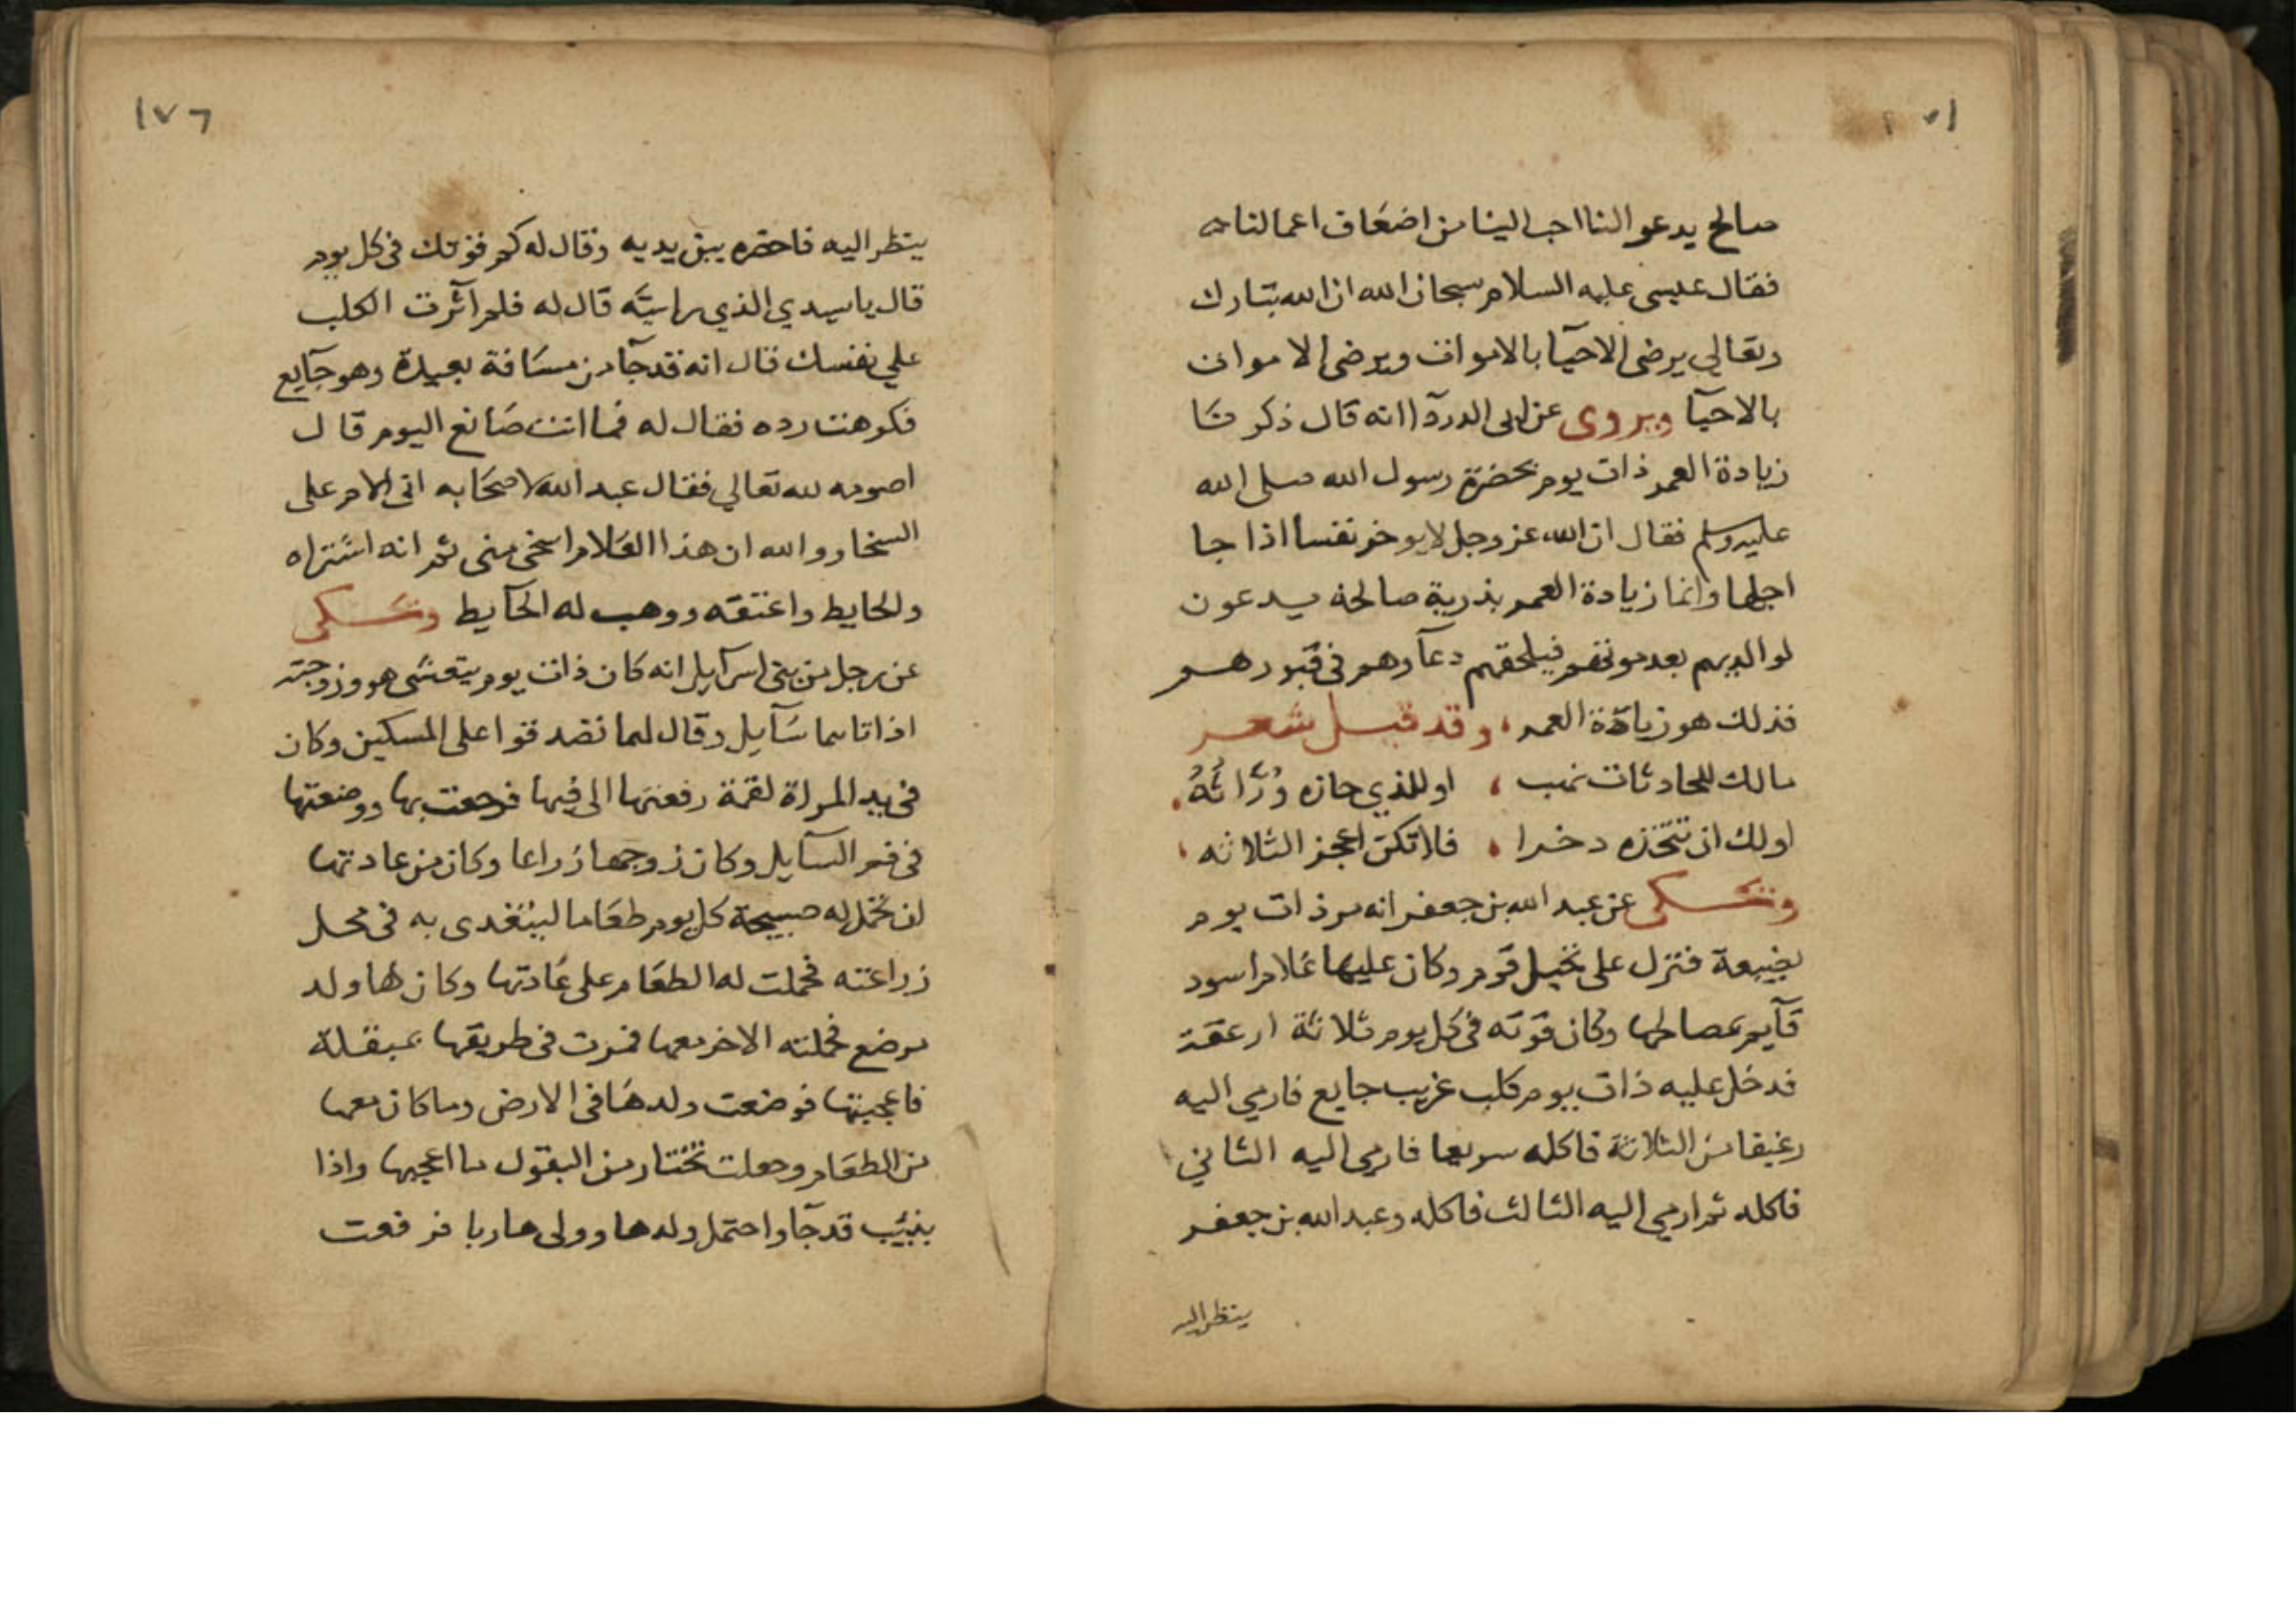 صالح يدعو النا احب الينا من اضعاف اعمالنا
فقال عيسى عليه السلام سبحان الله ان الله تبارك
وتعالي يرضى الاحيآ بالاموات ويرضى الاموات
بالاحيآ ويروى عن ابى الدردآ انه قال ذكرنا
زيادة العمر ذات يوم بحضرة رسول الله صلى الله
عليه وسلم فقال ان الله عز وجل لا يوخر نفسا اذا جا
اجلها وانما زيادة العمر بذرية صالحة يدعون
لوالديهم بعد موتهم فيلحقهم دعآوهم فى قبورهم
فذلك هو زيادة العمر، وقد قيل شعر
مالك للحادثات نهب ، او للذي حازه وُرَّاثُهُ
اولك ان تتخذه دخرا ، فلا تكن اعجز الثلاثه ،
وحكى عن عبد الله بن جعفر انه مر ذات يوم
بضيعة فنزل على نخيل قوم وكان عليها غلام اسود
قآيم بمصالحها وكان قوته فى كل يوم ثلاثة ارغفة
فدخل عليه ذات يوم كلب غريب جايع فارمي اليه
رغيفا من الثلاثة فاكله سريعا فارمى اليه الثاني
فاكله ثم ارمي اليه الثالث فاكله وعبد الله بن جعفر
ينظر اليه
١٧٦
ينظر اليه فاحضره بين يديه وقال له كم قوتك فى كل يوم
قال يا سيدي الذي رايته قال له فلم آثرت الكلب
علي نفسك قال انه قد جآ من مسافة بعيدة وهو جآيع
فكرهت رده فقال له فما انت صانع اليوم قال
اصومه لله تعالي فقال عبد الله لاصحابه انى الام على
السخا ووالله ان هذا الغلام اسخى منى ثم انه اشتراه
والحايط واعتقه ووهب له الحآيط وحكى
عن رجل من بنى اسرآيل انه كان ذات يوم يتعشى هو وزوجته
اذ اتاهما سآيل وقال لهما تصدقوا على المسكين وكان
فى يد المراة لقمة رفعتها الى فيها فرجعت بها ووضعتها
فى فم السآيل وكان زوجها زراعا وكان من عادتها
ان تحمل له صبيحة كل يوم طعاما ليتغدى به فى محل
زراعته فحملت له الطعام على عادتها وكان لها ولد
يرضع فحملته الاخر معها فمرت فى طريقها بمبقلة
فاعجبتها فوضعت ولدها فى الارض وما كان معها
من الطعام وجعلت تختار من البقول ما اعجبها واذا
بذيب قد جآ واحتمل ولدها وولى هاربا فرفعت